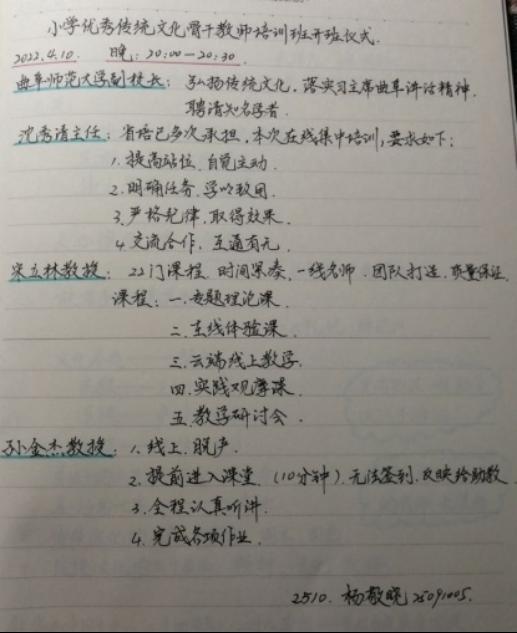 小学优秀传统文化骨干教师培训班开班仪式.
2022.4.10. 晚:20:00—20:30.
曲阜师范大学副校长: 弘扬传统文化, 落实习主席曲阜讲话精神.
聘请知名学者.
沈秀清主任: 省培已多次承担, 本次在线集中培训, 要求如下:
1. 提高站位、自觉主动.
2. 明确任务、学以致用.
3. 严格纪律、取得效果.
4. 交流合作、互通有无.
宋立林教授: 22门课程. 时间紧凑. 一线名师. 团队打造. 质量保证.
课程: 一. 专题理论课.
二. 在线体验课.
三. 云端线上教学.
四. 实践观摩课.
五. 教学研讨会.
孙金杰教授: 1. 线上. 脱产.
2. 提前进入课堂. (10分钟). 无法签到. 反映给助教.
3. 全程认真听讲.
4. 完成各项作业.
2510. 杨敬晓 25091005.